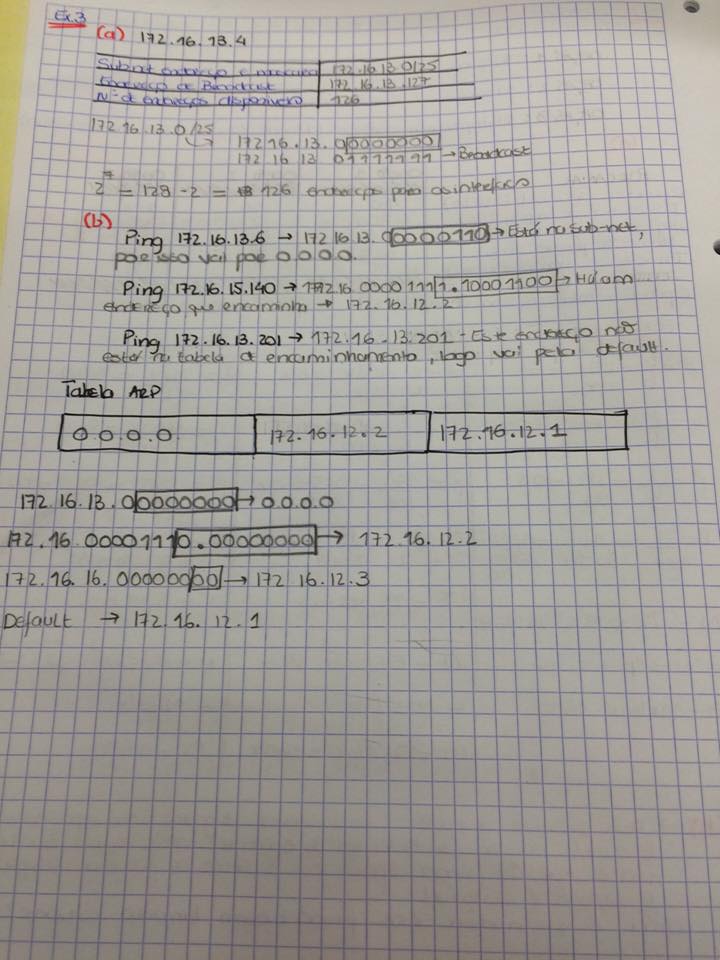 Ex.3
(a) 172.16.13.4
Subnet endereço e máscara 172.16.13.0/25
Endereço de Broadcast 172.16.13.127
Nº de endereços disponíveis 126
172.16.13.0/25
172.16.13.00000000
172.16.13 01111111 → Broadcast
2^7 = 128 - 2 = 126 endereços para as interfaces
(b)
Ping 172.16.13.6 → 172.16.13.00000110 → Está na sub-net,
por isso vai por 0.0.0.0.
Ping 172.16.15.140 → 172.16.00001111.10001100 → Há um
endereço que encaminha → 172.16.12.2
Ping 172.16.13.201 → 172.16.13.201 - Este endereço não
está na tabela de encaminhamento, logo vai pela default.
Tabela ARP
0.0.0.0 172.16.12.2 172.16.12.1
172.16.13.00000000 → 0.0.0.0
172.16.00001110.00000000 → 172.16.12.2
172.16.16.00000000 → 172.16.12.3
Default → 172.16.12.1